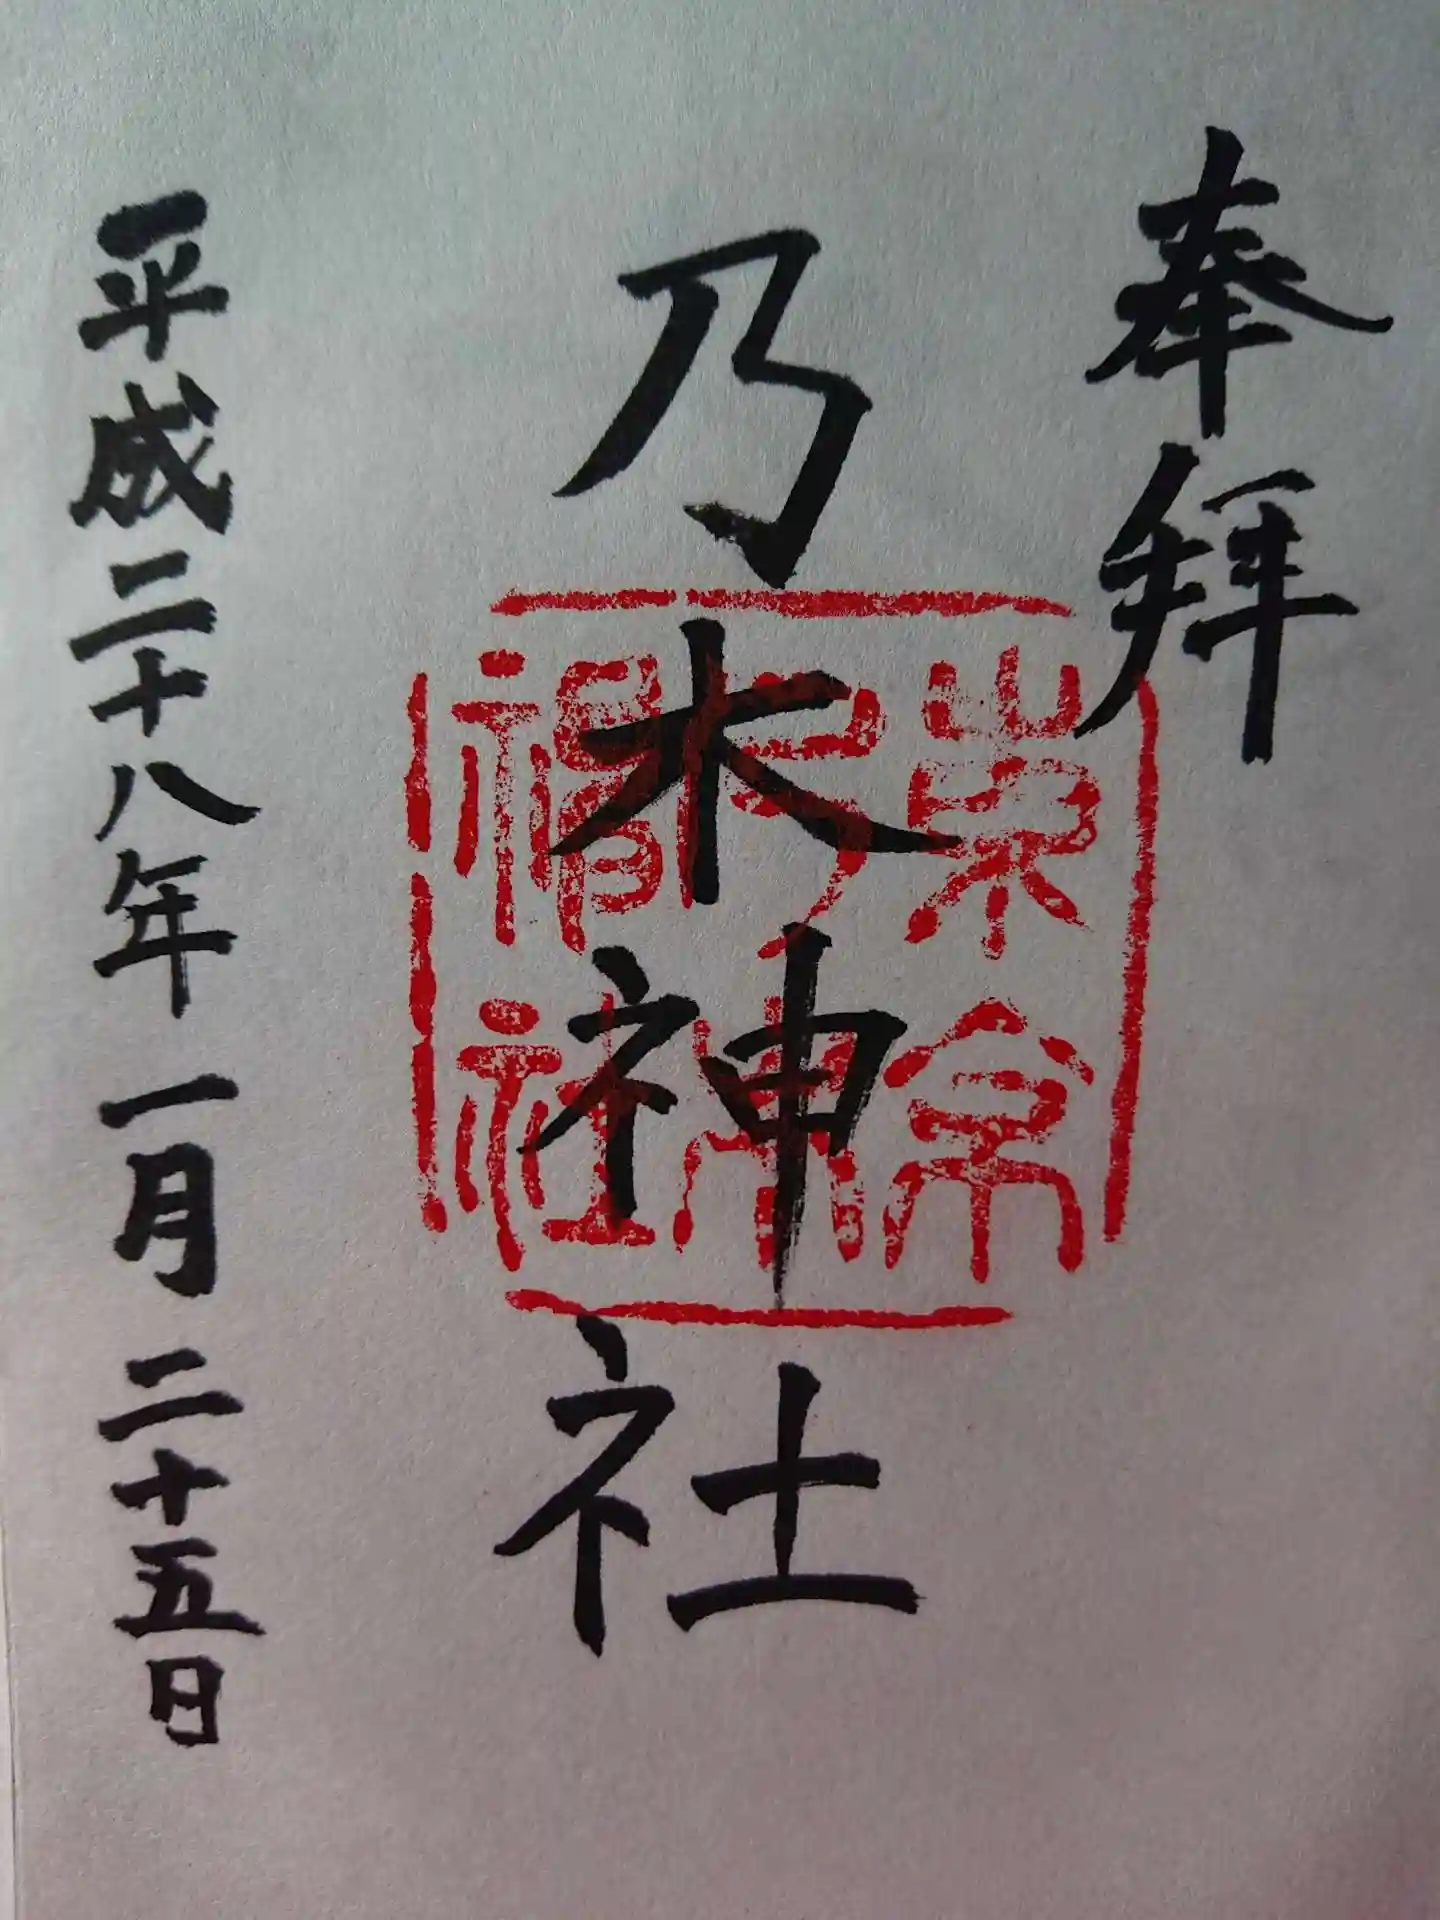 奉拝
乃木神社
東京
乃木
神社
平成二十八年一月二十五日